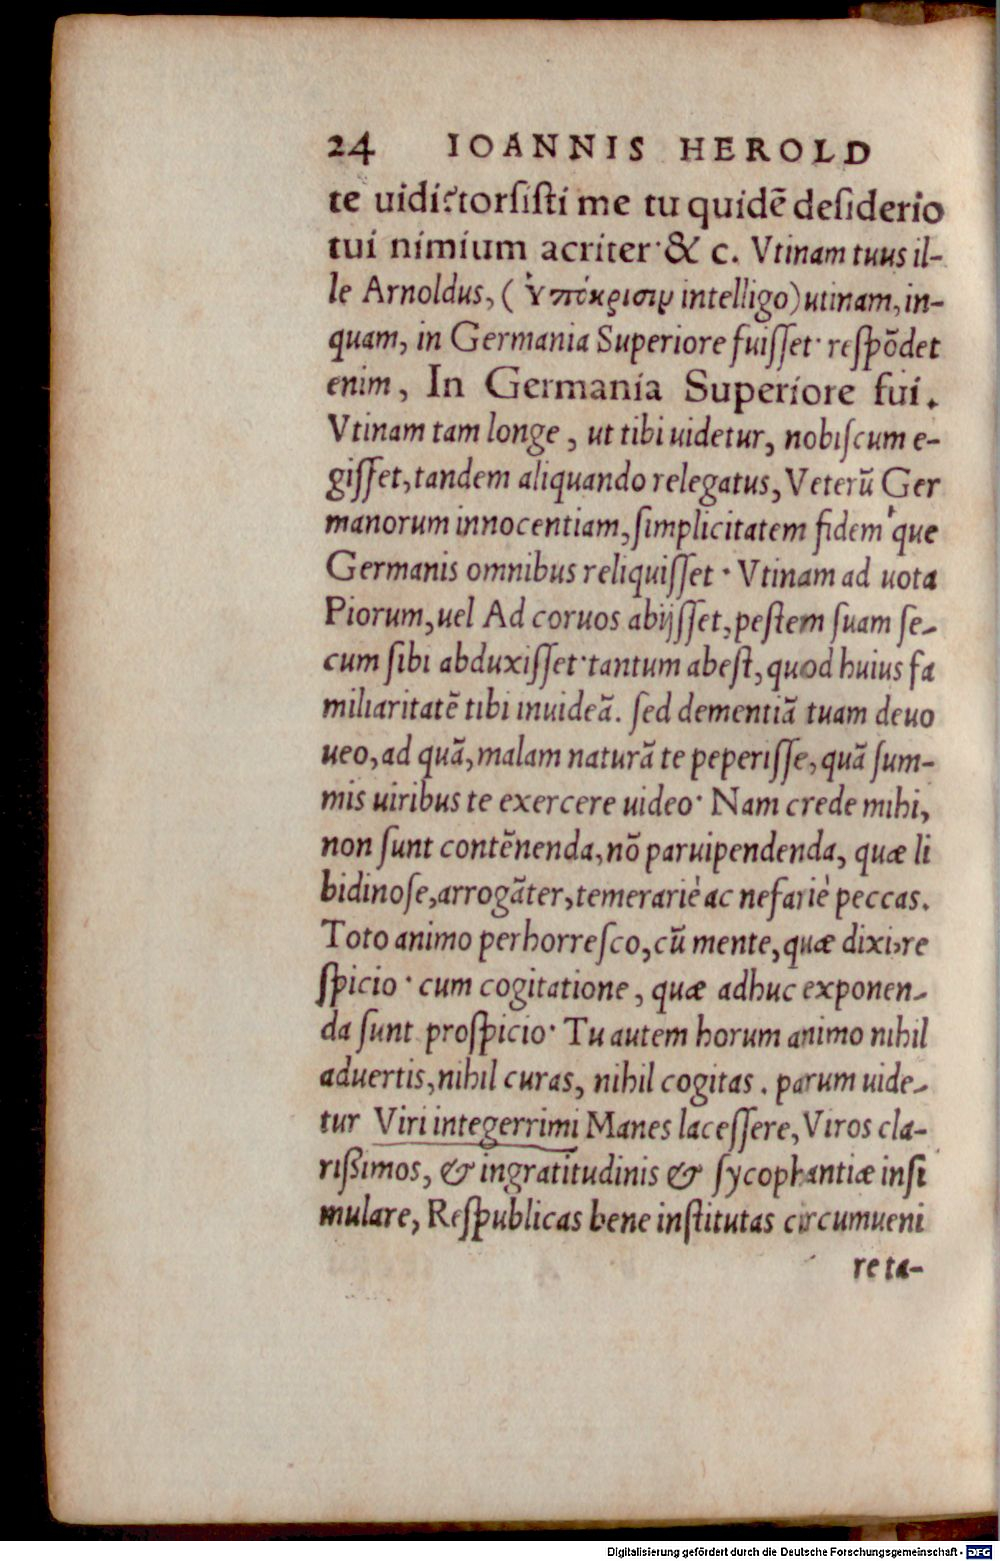 24 IOANNIS HEROLD
te uidi? torſiſti me tu quidē deſiderio
tui nimium acriter· & c. Vtinam tuus il-
le Arnoldus, (Ὑπόκρισιν intelligo) utinam, in-
quam, in Germania Superiore fuiſſet· reſpōdet
enim, In Germania Superiore fui.
Vtinam tam longe, ut tibi uidetur, nobiſcum e-
giſſet, tandem aliquando relegatus, Veterū Ger
manorum innocentiam, ſimplicitatem fidem'que
Germanis omnibus reliquiſſet· Vtinam ad uota
Piorum, uel Ad coruos abijſſet, peſtem ſuam ſe-
cum ſibi abduxiſſet· tantum abeſt, quod huius fa
miliaritatē tibi inuideā. ſed dementiā tuam deuo
ueo, ad quā, malam naturā te peperiſſe, quā ſum-
mis uiribus te exercere uideo· Nam crede mihi,
non ſunt contēnenda, nō paruipendenda, quæ li
bidinoſe, arrogāter, temerariè ac nefariè peccas.
Toto animo perhorreſco, cū mente, quæ dixi, re
ſpicio· cum cogitatione, quæ adhuc exponen-
da ſunt proſpicio· Tu autem horum animo nihil
aduertis, nihil curas, nihil cogitas. parum uide-
tur Viri integerrimi Manes laceſſere, Viros cla-
rißimos, & ingratitudinis & ſycophantiæ inſi
mulare, Reſpublicas bene inſtitutas circumueni
re ta-
Digitalisierung gefördert durch die Deutsche Forschungsgemeinschaft - DFG